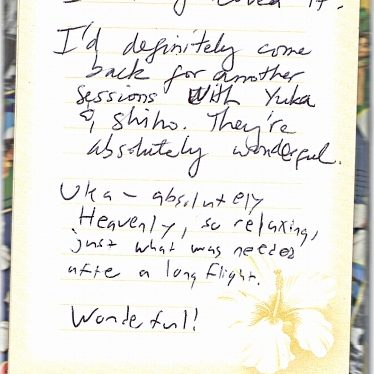 loved it.
I'd definitely come
back for another
sessions with Yuka
& Shiho. They're
absolutely wonderful.
UKa – absolutely
Heavenly, so relaxing,
just what was needed
afte a long flight.
Wonderful!